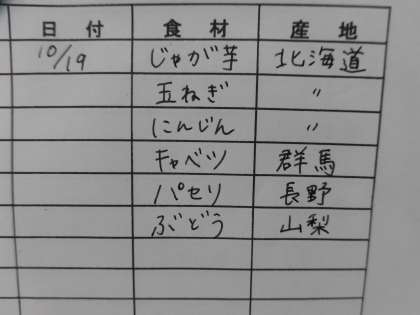 日付 食材 産地
10/19 じゃが芋 北海道
玉ねぎ 〃
にんじん 〃
キャベツ 群馬
パセリ 長野
ぶどう 山梨